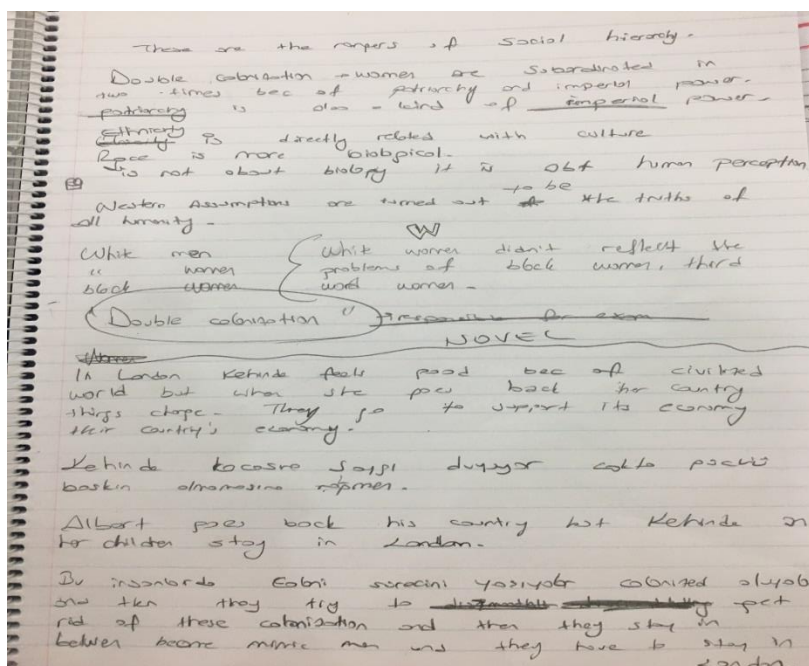 These are the rangers of social hierarchy.
Double colonisation → women are subordinated in
two times bec of patriarchy and imperial power.
patriarchy is also a kind of imperial power.
Ethnicity is directly related with culture
Race is more biological.
is not about biology it is abt human perception
Western Assumptions are turned out to be the truths of
all humanity.
White men
" women
black women
White women didn't reflect the
problems of black women, third
world women.
"Double colonisation"
NOVEL
In London Kehinde feels good bec of civilized
world but when she goes back her country
things change. They go to support its economy
their country's economy.
Kehinde kocasına saygı duyuyor çokta
baskın olmamasına rağmen.
Albert goes back his country but Kehinde an
her children stay in London.
Bu insanlarda sürecini yaşıyolar colonized oluyolar
and then they try to get
rid of these colonisation and then they stay in
between become mimic men and they have to stay in
London